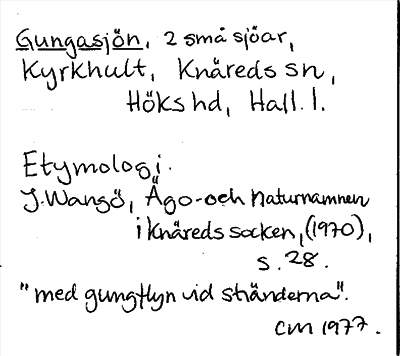 Gungasjön, 2 små sjöar,
Kyrkhult, Knäreds sn,
Höks hd, Hall. l.
Etymologi.
J. Wangö, Ägo- och Naturnamnen
i Knäreds socken, (1970),
s. 28.
"med gungflyn vid stränderna".
CM 1977.